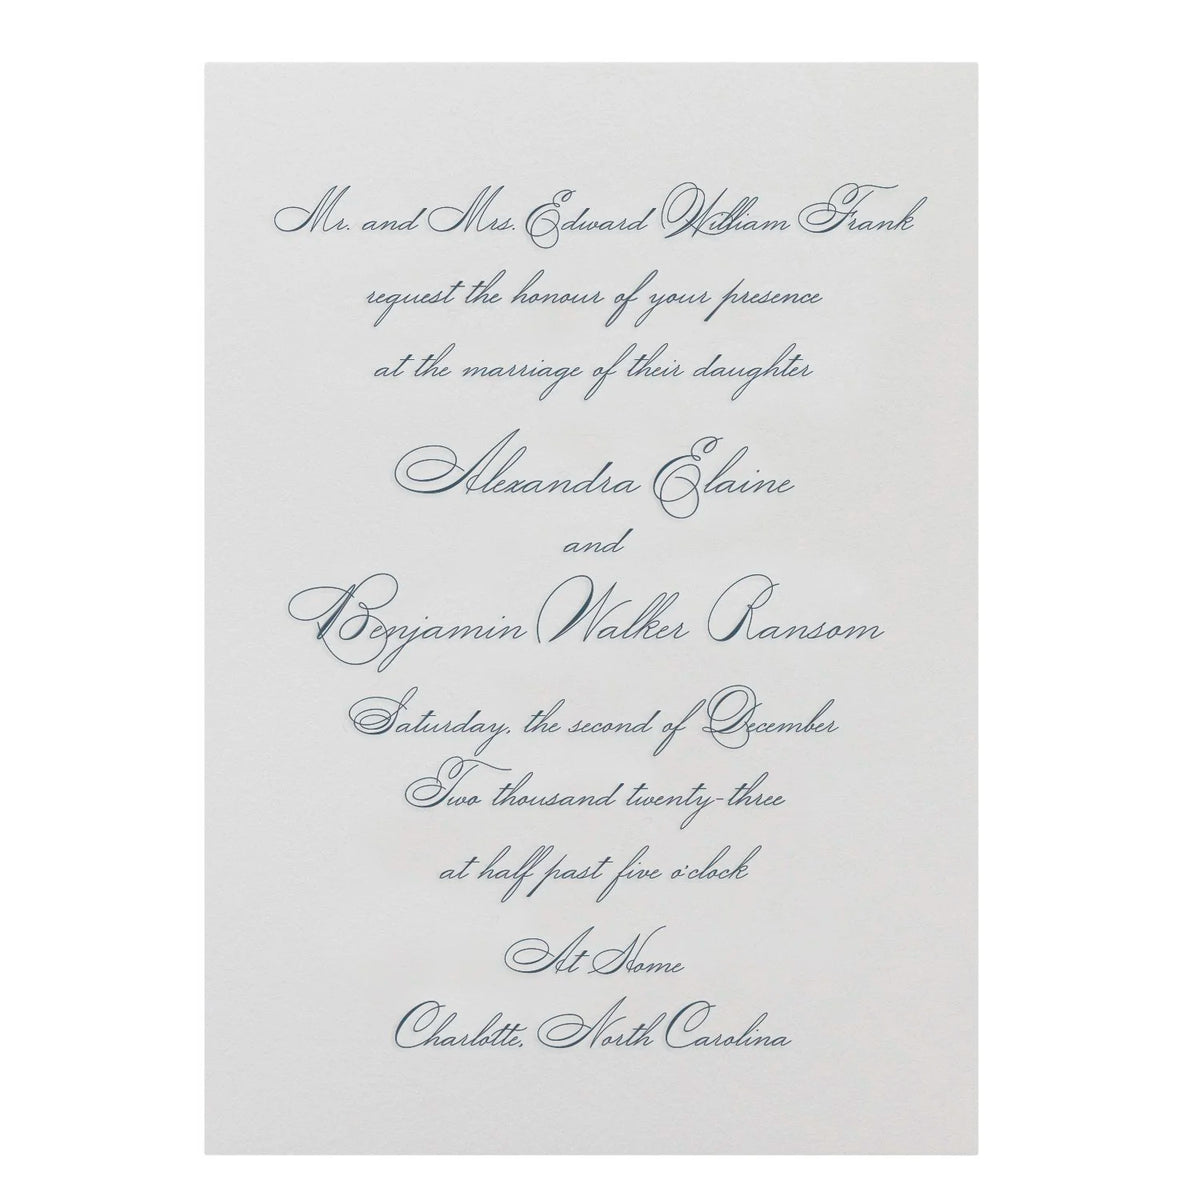 Mr. and Mrs. Edward William Frank
request the honour of your presence
at the marriage of their daughter
Alexandra Elaine
and
Benjamin Walker Ransom
Saturday, the second of December
Two thousand twenty-three
at half past five o'clock
At Home
Charlotte, North Carolina